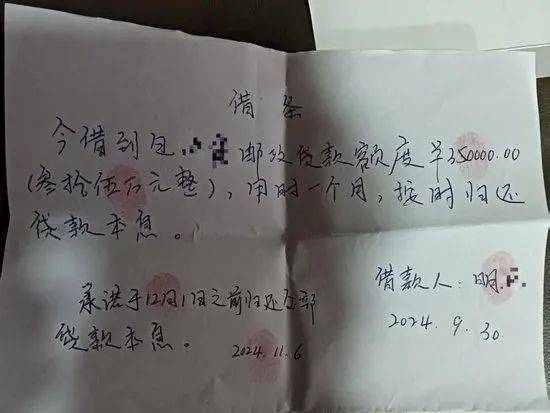 借条
今借到包 邮政贷款额度¥350000.00
(叁拾伍万元整)，用时一个月，按时归还
贷款本息。
借款人：明
2024.9.30
承诺于12月1日之前归还全部
贷款本息。
2024.11.6